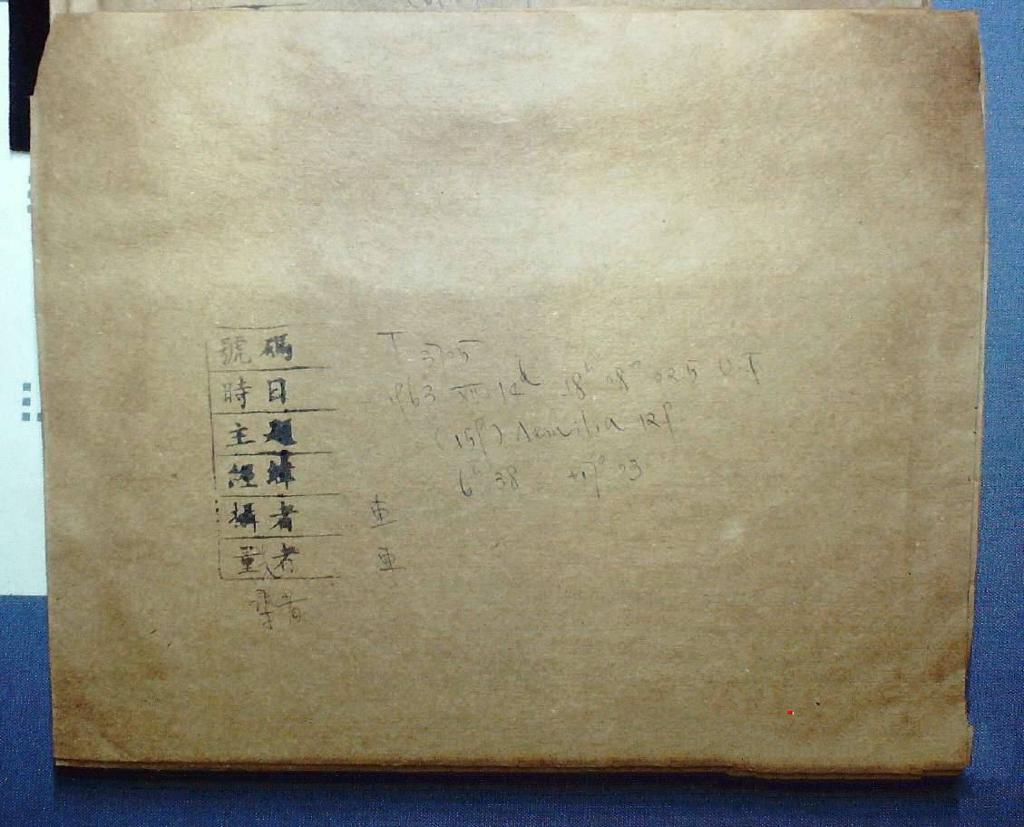 號碼 T 3705
時日 1963 XII 12d 18h 18m 02.5 U T
主題 (159) Aemilia 12P
經緯 6h 38 +17° 23
攝者 車
量者 車